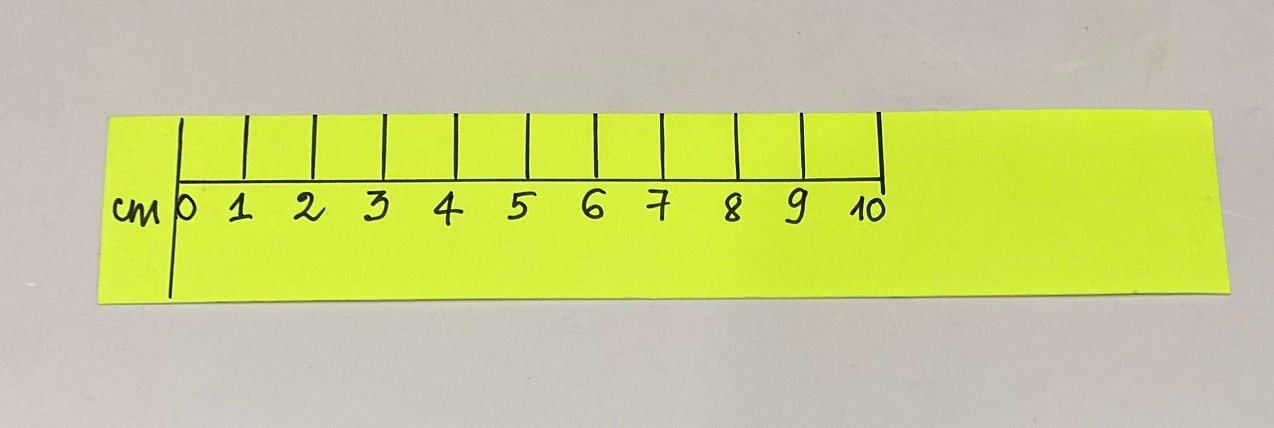 cm 0 1 2 3 4 5 6 7 8 9 10